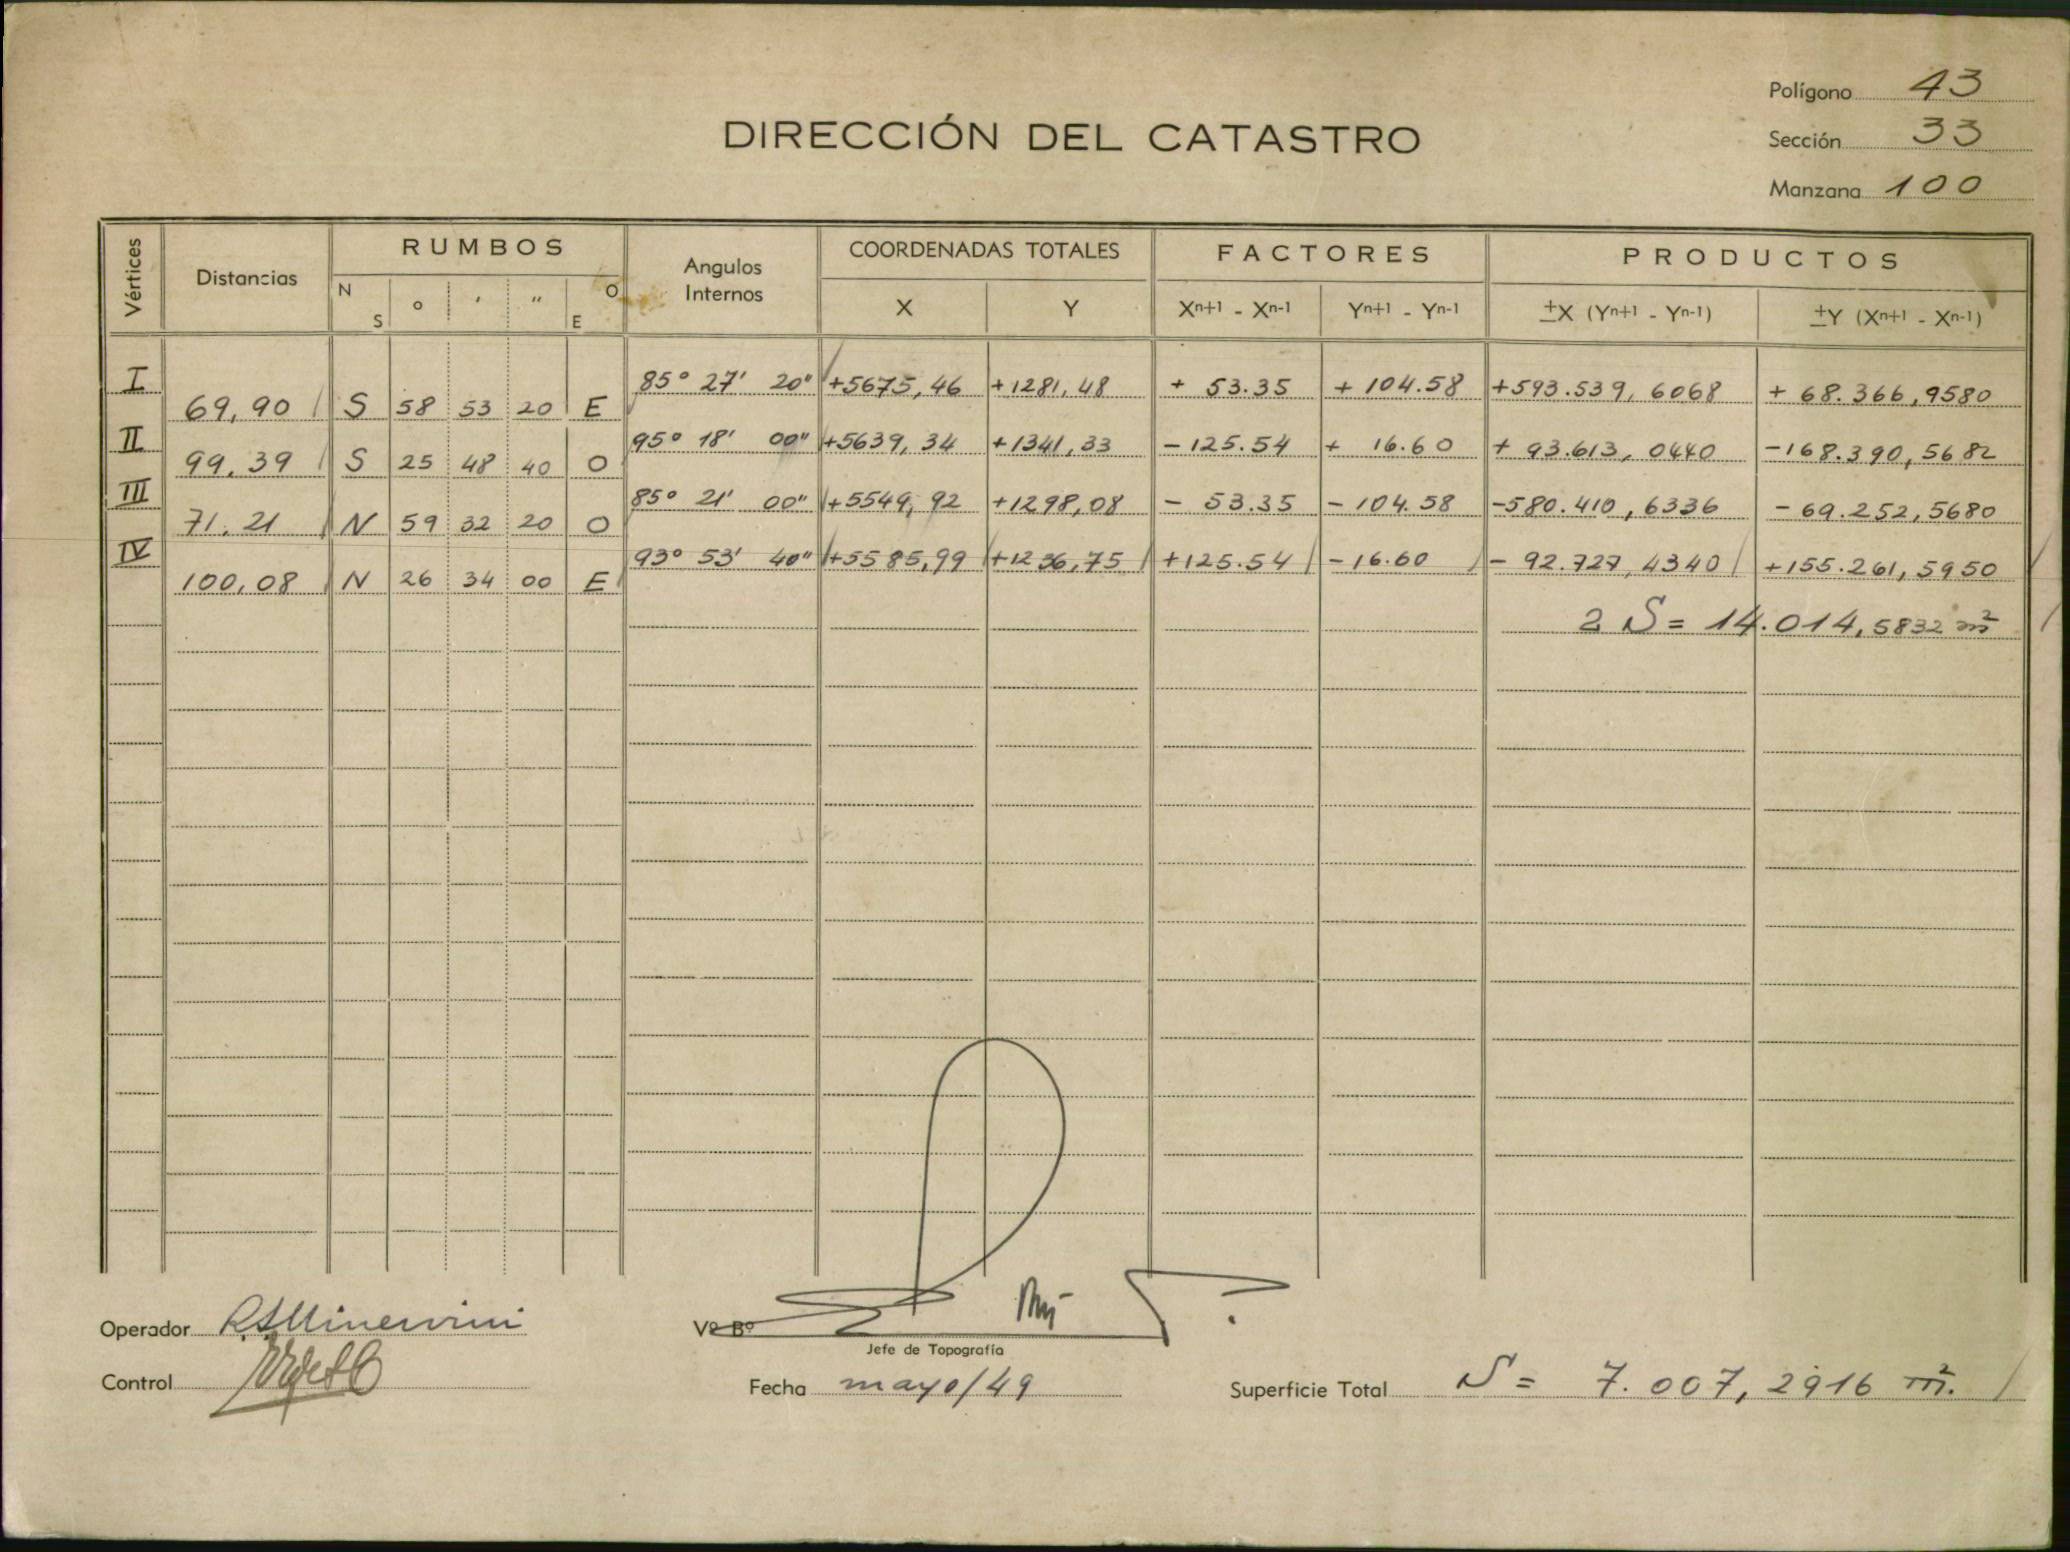 Polígono 43
DIRECCIÓN DEL CATASTRO
Sección 33
Manzana 100
Vértices Distancias RUMBOS Angulos Internos COORDENADAS TOTALES FACTORES PRODUCTOS
N S ° ' " E O X Y Xn+1 - Xn-1 Yn+1 - Yn-1 ±X (Yn+1 - Yn-1) ±Y (Xn+1 - Xn-1)
I 85° 27' 20" +5675,46 +1281,48 + 53.35 + 104.58 +593.539,6068 + 68.366,9580
69,90 S 58 53 20 E
II 95° 18' 00" +5639,34 +1341,33 -125.54 + 16.60 + 93.613,0440 -168.390,5682
99,39 S 25 48 40 O
III 85° 21' 00" +5549,92 +1298,08 - 53.35 - 104.58 -580.410,6336 - 69.252,5680
71,21 N 59 32 20 O
IV 93° 53' 40" +5585,99 +1236,75 +125.54 -16.60 - 92.727,4340 +155.261,5950
100,08 N 26 34 00 E
2 S = 14.014,5832 m²
Operador R.A.Minervini
Vº Bº
Jefe de Topografía
Control
Fecha mayo/49
Superficie Total S = 7.007,2916 m².